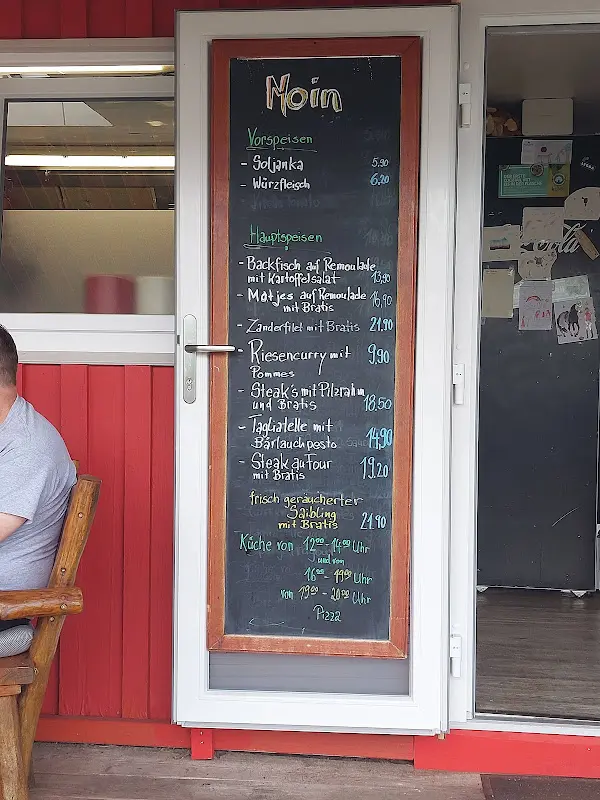 Moin
Vorspeisen
- Soljanka 5,90
- Würzfleisch 6,20
Hauptspeisen
- Backfisch auf Remoulade
mit Kartoffelsalat 13,90
- Matjes auf Remoulade 16,90
mit Bratis
- Zanderfilet mit Bratis 21,90
- Riesencurry mit 9,90
Pommes
- Steak's mit Pilzrahm
und Bratis 18.50
- Tagliatelle mit 14,90
Bärlauchpesto
- Steak au Four 19.20
mit Bratis
frisch geräucherter
Saibling
mit Bratis 21.90
Küche von 12⁰⁰ - 14⁰⁰ Uhr
und von
16⁰⁰ - 19⁰⁰ Uhr
von 19⁰⁰ - 20⁰⁰ Uhr
Pizza